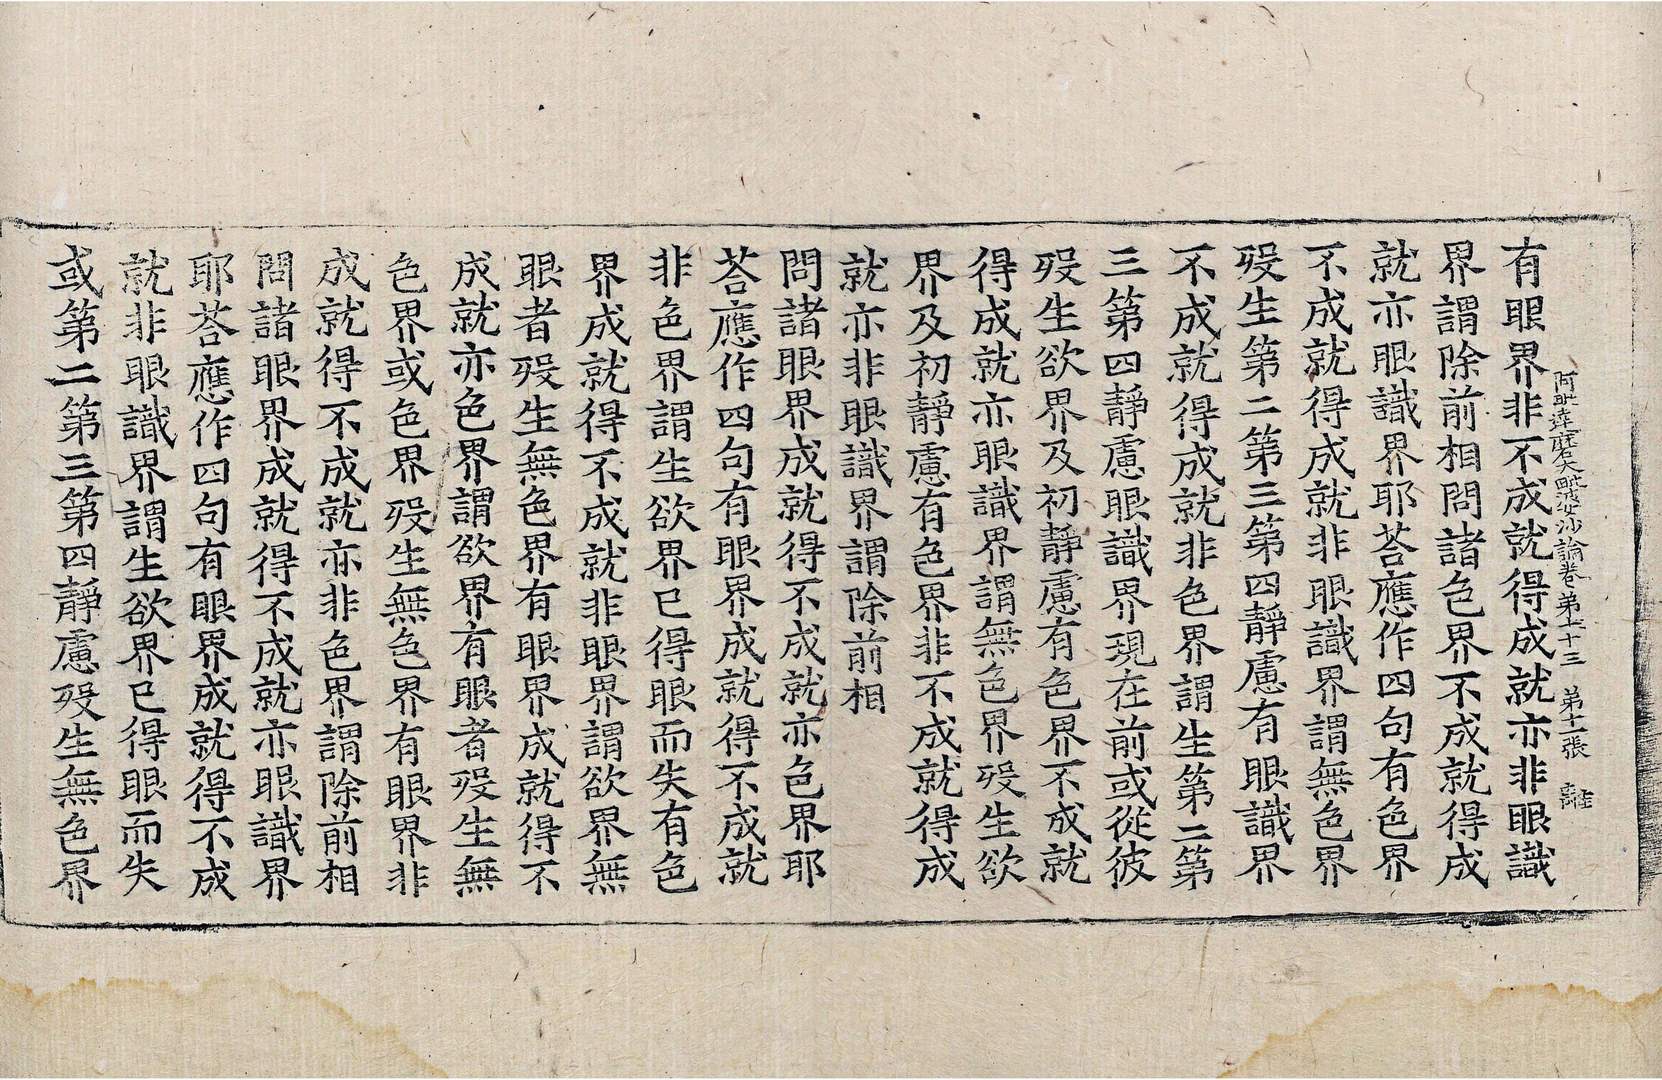 阿毗達磨大毗婆沙論卷第七十三 第十一張
有眼界非不成就得成就亦非眼識
界謂除前相問諸色界不成就得成
就亦眼識界耶荅應作四句有色界
不成就得成就非眼識界謂無色界
歿生第二第三第四靜慮有眼識界
不成就得成就非色界謂生第二第
三第四靜慮眼識界現在前或從彼
歿生欲界及初靜慮有色界不成就
得成就亦眼識界謂無色界歿生欲
界及初靜慮有色界非不成就得成
就亦非眼識界謂除前相
問諸眼界成就得不成就亦色界耶
荅應作四句有眼界成就得不成就
非色界謂生欲界已得眼而失有色
界成就得不成就非眼界謂欲界無
眼者歿生無色界有眼界成就得不
成就亦色界謂欲界有眼者歿生無
色界或色界歿生無色界有眼界非
成就得不成就亦非色界謂除前相
問諸眼界成就得不成就亦眼識界
耶荅應作四句有眼界成就得不成
就非眼識界謂生欲界已得眼而失
或第二第三第四靜慮歿生無色界